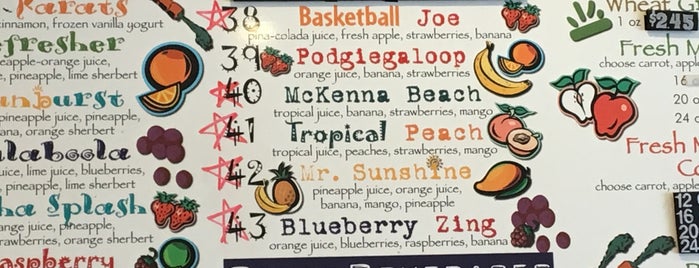 Karats
cinnamon, frozen vanilla yogurt
efresher
apple-orange juice,
, pineapple, lime sherbert
unburst
pineapple juice, pineapple,
nana, orange sherbert
laboola
juice, lime juice, blueberries,
pineapple, lime sherbert
ha Splash
pineapple juice,
rawberries, orange sherbert
Raspberry
38 Basketball Joe
pina-colada juice, fresh apple, strawberries, banana
39 Podgiegaloop
orange juice, banana, strawberries
40 McKenna Beach
tropical juice, banana, strawberries, mango
41 Tropical Peach
tropical juice, peaches, strawberries, mango
42 Mr. Sunshine
pineapple juice, orange juice,
banana, mango, pineapple
43 Blueberry Zing
orange juice, blueberries, raspberries, banana
Wheat G
1 oz $2.45
Fresh M
choose carrot, appl
16
20
24 o
Fresh M
Co
choose carrot, apple
12
16
20
24